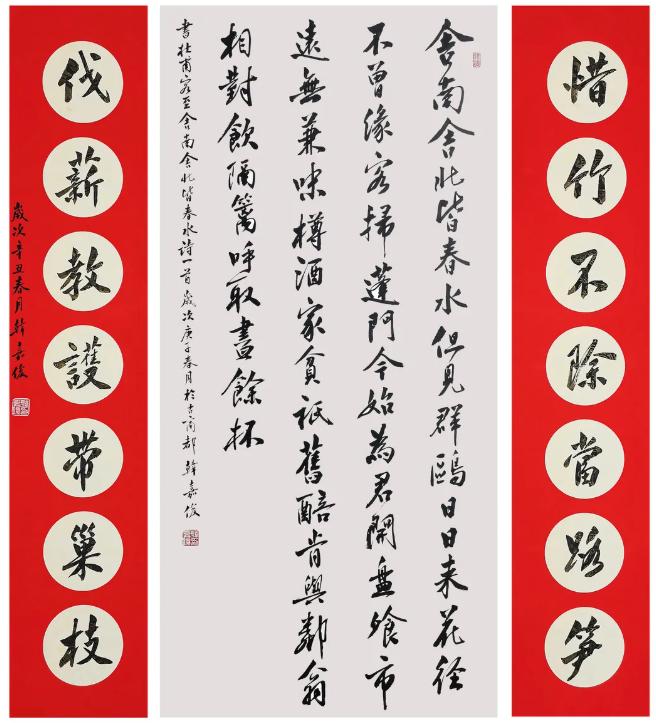 惜竹不除當路笋
舍南舍北皆春水但見群鷗日日来花径
不曾緣客掃蓬門今始為君開盤飱市
遠無兼味樽酒家貧祇舊醅肯與鄰翁
相對飲隔篱呼取盡餘杯
書杜甫客至舍南舍北皆春水詩一首歲次庚子春月於古商都韓嘉俊
伐薪教護帶巢枝
歲次辛丑春月韓嘉俊